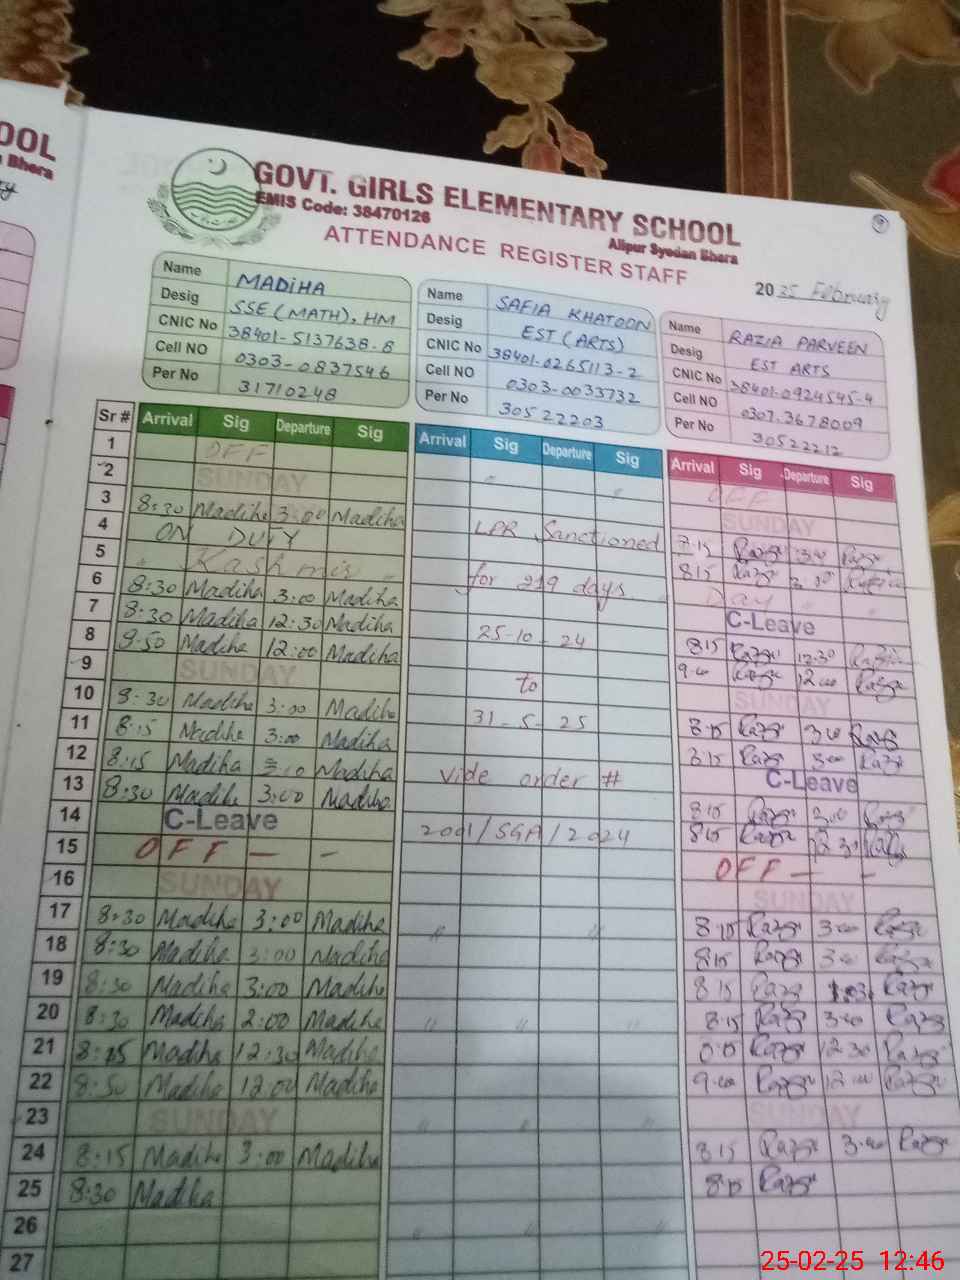 OOL
Bhera
GOVT. GIRLS ELEMENTARY SCHOOL
EMIS Code: 38470126
Alipur Syedan Bhera
ATTENDANCE REGISTER STAFF
2025 February
Name MADIHA
Desig SSE (MATH), HM
CNIC No 38401-5137638-8
Cell NO 0303-0837546
Per No 31710248
Name SAFIA KHATOON
Desig EST (ARTS)
CNIC No 38401-0265113-2
Cell NO 0303-0033732
Per No 30522203
Name RAZIA PARVEEN
Desig EST ARTS
CNIC No 38401-0924545-4
Cell NO 0307-3678009
Per No 30522212
Sr # Arrival Sig Departure Sig Arrival Sig Departure Sig Arrival Sig Departure Sig
1 OFF " " OFF
2 SUNDAY SUNDAY
3 8:30 Madiha 3:00 Madiha LPR Sanctioned
4 ON DUTY 8:15
5 " Kashmir " for 219 days Day
6 8:30 Madiha 3:00 Madiha C-Leave
7 8:30 Madiha 12:30 Madiha 25-10-24 8:15 12:30
8 9:50 Madiha 12:00 Madiha 9:00 12:00
9 SUNDAY to SUNDAY
10 8:30 Madiha 3:00 Madiha 31-5-25 8:15 3:00
11 8:15 Madiha 3:00 Madiha 8:15 3:00
12 8:15 Madiha 3:00 Madiha vide order # C-Leave
13 8:30 Madiha 3:00 Madiha 8:15 3:00
14 C-Leave 2001/SGA/2024 8:15 12:30
15 OFF — - OFF — -
16 SUNDAY SUNDAY
17 8:30 Madiha 3:00 Madiha " " 8:15 3:00
18 8:30 Madiha 3:00 Madiha 8:15 3:00
19 8:30 Madiha 3:00 Madiha 8:15
20 8:30 Madiha 2:00 Madiha " " " 8:15 3:00
21 8:15 Madiha 12:30 Madiha 8:15 12:30
22 8:50 Madiha 12:00 Madiha 9:00 12:00
23 SUNDAY " " " SUNDAY
24 8:15 Madiha 3:00 Madiha 8:15 3:00
25 8:30 Madiha 8:15
26 " " "
27
25-02-25 12:46